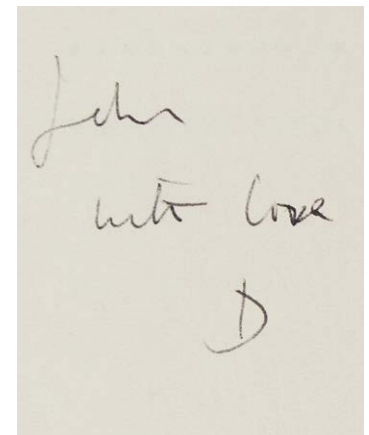 John
with love
D